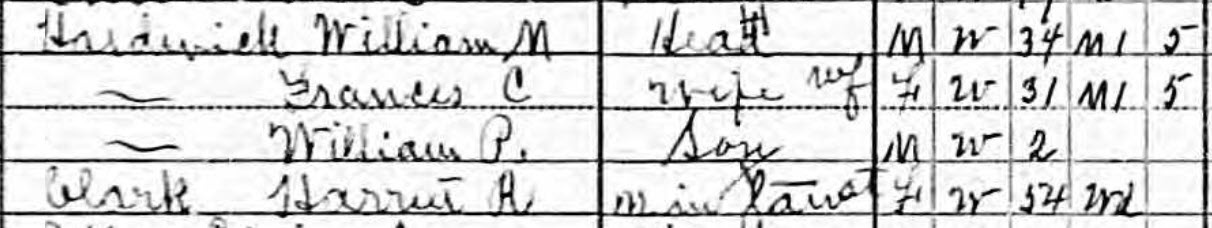 Hardwick William M Head M W 34 M1 5
— Frances C Wife F W 31 M1 5
— William P. Son M W 2
Clark Harriet A M in Law F W 54 Wd